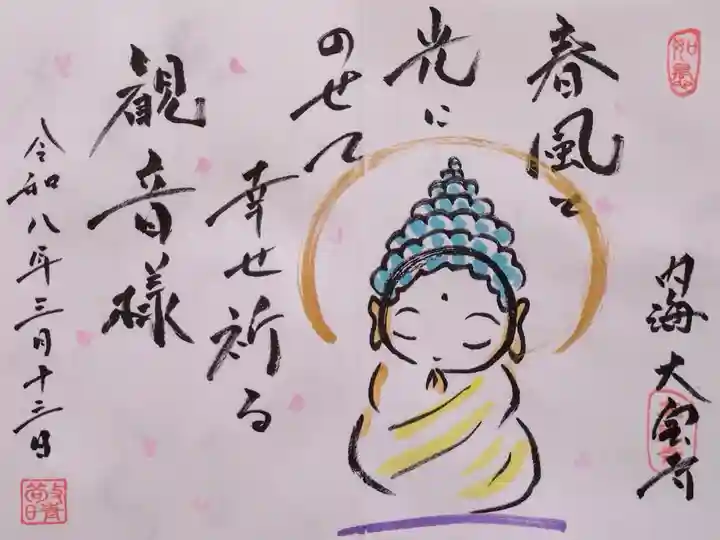 春風と
光に
のせて
幸せ祈る
観音様
内海大宝寺
令和八年三月十三日